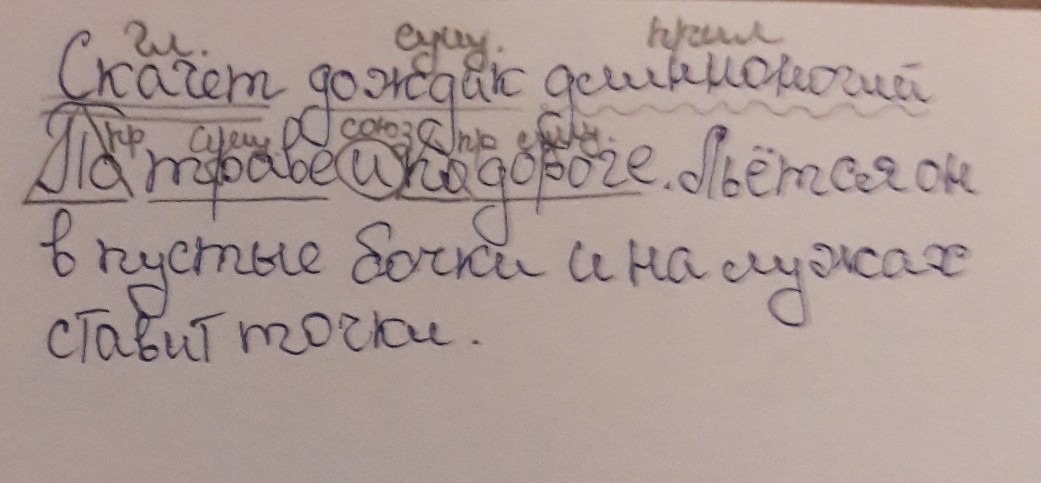 гл. сущ. прил
Скачет дождик длинноногий
пр сущ. союз пр сущ.
По траве и по дороге. Льётся он
в пустые бочки и на лужах
ставит точки.